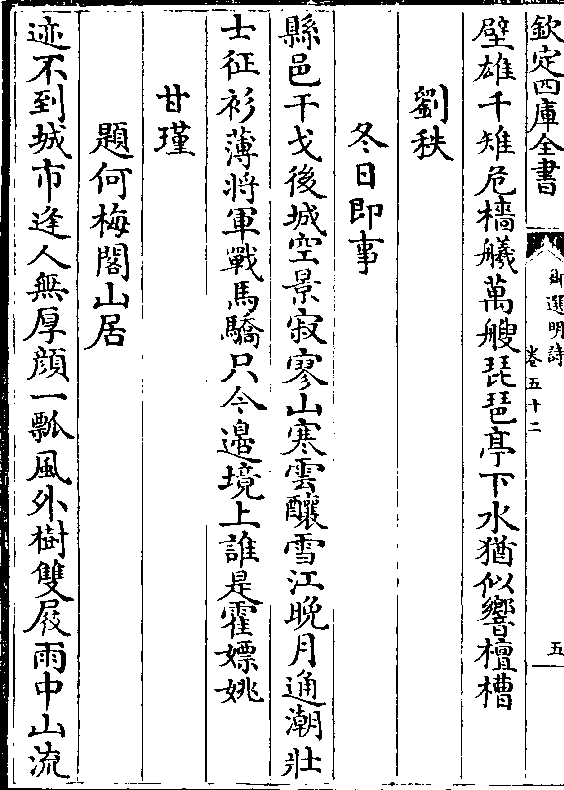 欽定四庫全書
御選明詩
卷五十二
五
壁雄千雉危檣艤萬艘琵琶亭下水猶似響檀槽
劉秩
冬日即事
縣邑干戈後城空景寂寥山寒雲釀雪江晚月通潮壯
士征衫薄將軍戰馬驕只今邊境上誰是霍嫖姚
甘瑾
題何梅閣山居
迹不到城市逢人無厚顔一瓢風外樹雙屐雨中山流